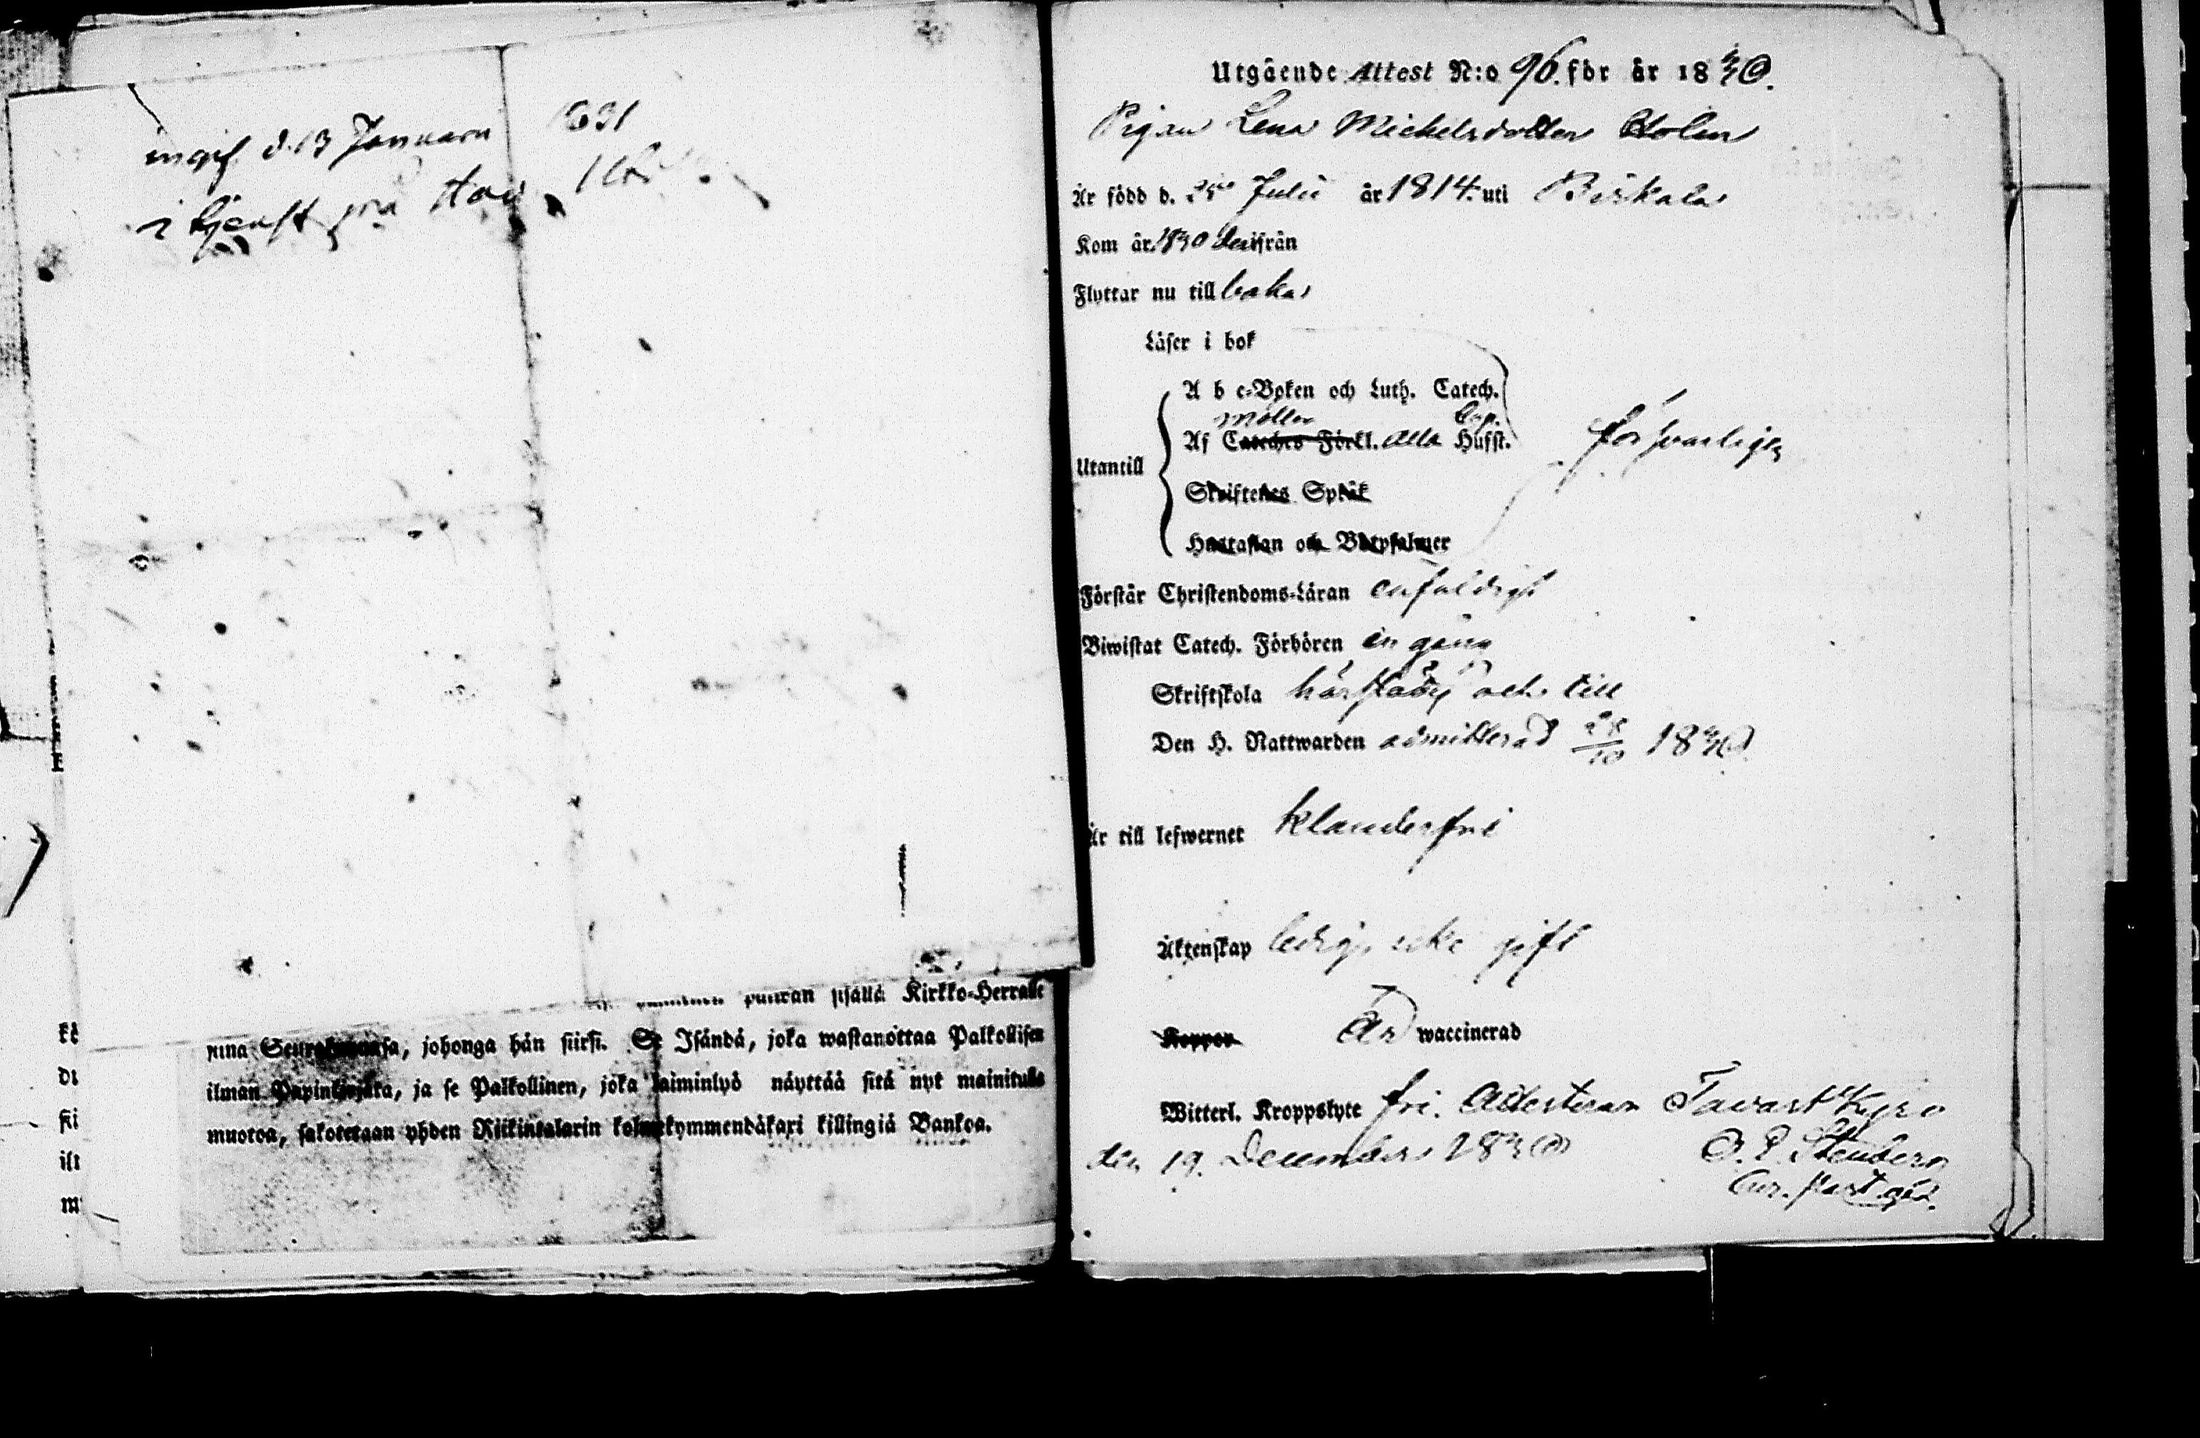 ingif. d. 13 Januarii 1831
i tjenst på
kå
di
sii
ilt
m
puuran sisällä Kirkko-Herralle
siinä Seurakunnasa, johonga hån siirsi. Se Isåndå, joka wastanottaa Palkollisen
ilman Papinkirjata, ja se Palkollinen, joka laiminlyö nåyttåå sitå nyt mainitulla
muotoa, sakotetaan yhden Riikintalarin kolmekymmendåkaxi killingiå Bankoa.
Utgående Attest N:o 96. för år 1830.
Pigan Lena Michelsdotter Holm
Är född d. 25 Julii år 1814. uti Birkala
Kom år 1830 derifrån
Flyttar nu till baka
Läser i bok
A b c-Boken och Luth. Catech.
möller cap.
Af Cateches Förkl. alla Hufst. försvarligen
Utantill
Skriftenes Språk
Hustaflan och Botpsalmer
Förstår Christendoms-Läran enfaldigt
Biwistat Catech. Förhören en gång
Skriftskola härstädes och till
Den H. Nattwarden admitterad 24/10 1830
Är till lefwernet klanderfri
Äktenskap ledig, icke gift
Koppor Är waccinerad
Witterl. Kroppslyte fri. Attesteras Tavast Kyro
den 19. December 1830
O. E. Stenberg
Cur. past. adj.